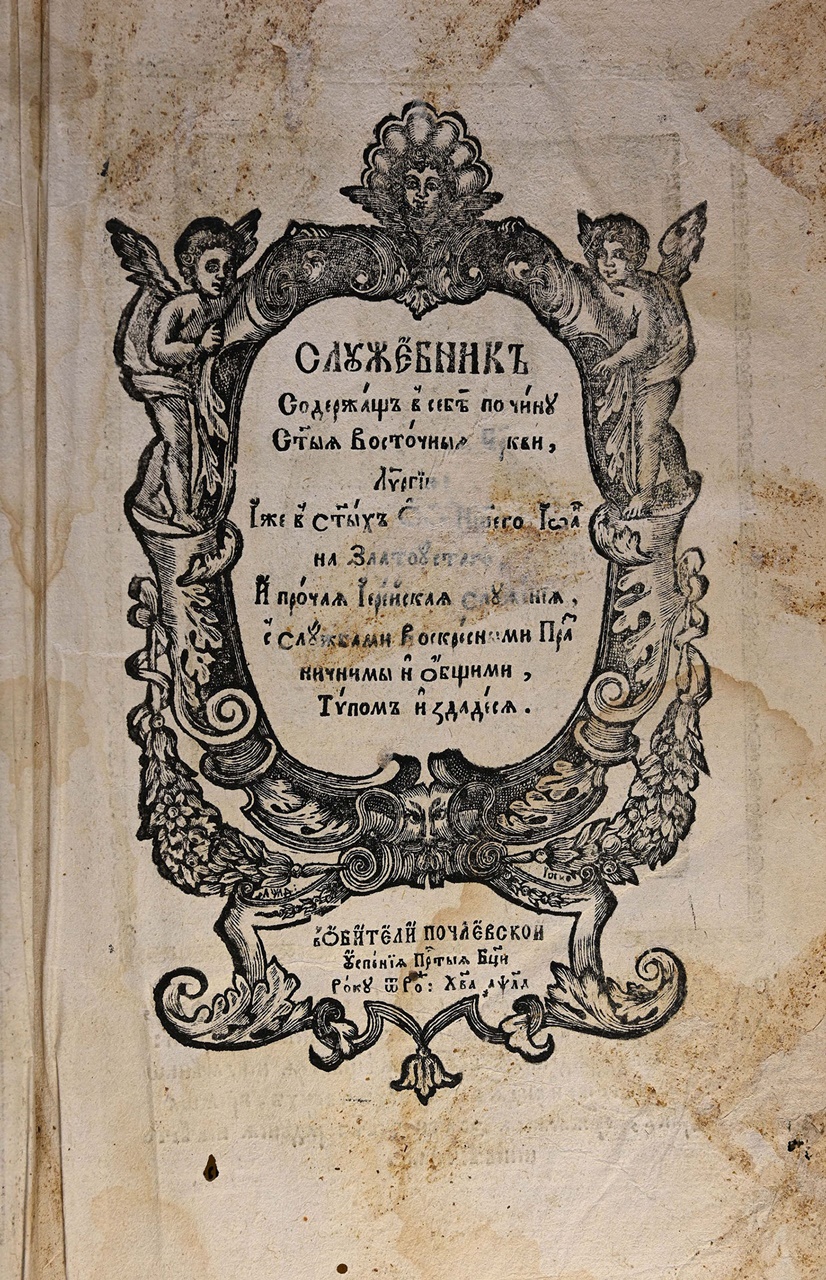 СЛꙊЖЕ́БНИКЪ
Содержа́щъ в̾ себѣ̀ по чи́нꙋ
Ст҃ы́ѧ Восто́чныѧ кви,
Лꙋргі́и
И҆́же в̾ ст҃ы́хъ Іѡа
на Златоꙋстаго
И҆ про́чаѧ І҆ере́йскаѧ слꙋже́нїѧ,
с̾ слꙋ́жбами Воскре́сными Пра
ничними и҆ ѻ҆́бщими,
Тѵ́помъ и҆здаде́сѧ.
в̾ ѺБИ́ТЕЛИ ПОЧАЕ́ВСКОЙ
Оу҆спе́нїѧ Пр҃тыѧ Бц҃и
Ро́кꙋ ѿ Ро: Хв҃а